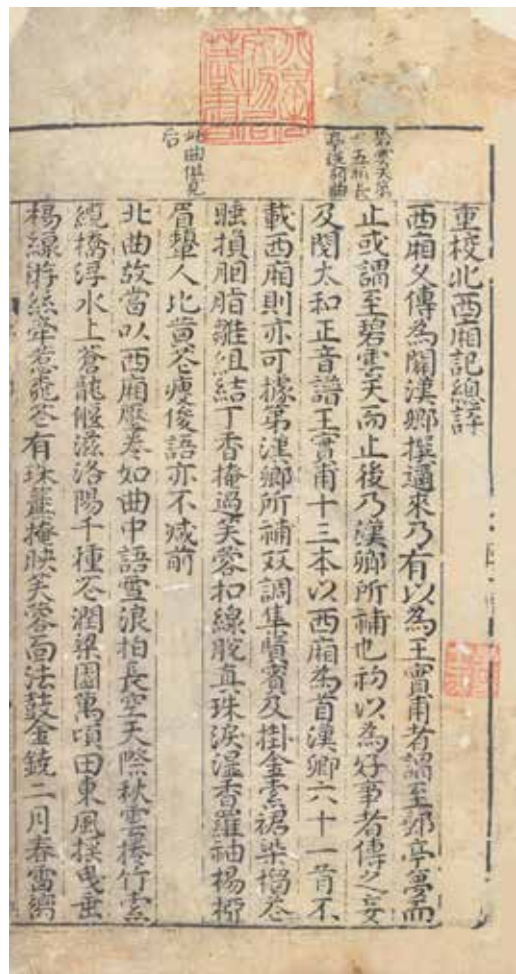 碧雲天第
十五折長
亭送別曲
此曲俱見
后
重校北西廂記總評
西廂久傳為關漢卿撰邇來乃有以為王實甫者謂至郵亭夢而
止或謂至碧雲天而止後乃漢卿所補也初以為好事者傳之妄
及閱太和正音譜王實甫十三本以西廂為首漢卿六十一首不
載西廂則亦可據第漢卿所補双調集賢賓及掛金索裙染榴花
睡損胭脂皺紐結丁香掩過芙蓉扣線脫真珠淚湿香羅袖楊柳
眉顰人比黃花瘦俊語亦不減前
北曲故當以西廂壓卷如曲中語雪浪拍長空天際秋雲捲竹索
纜橋浮水上蒼龍偃滋洛陽千種花潤梁園萬頃田東風搖曳垂
楊線游絲牽惹桃花有珠簾掩映芙蓉面法鼓金鐃二月春雷响